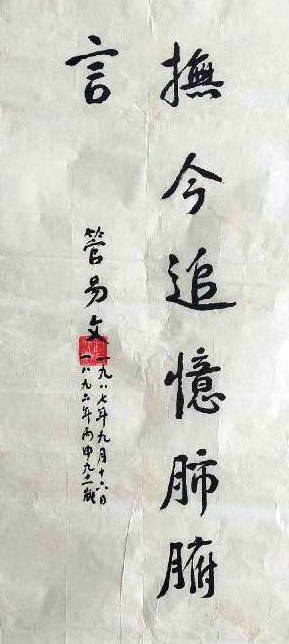 撫今追憶肺腑
言
管易文
一九八七年九月十六日
一八九六年丙申九十一歲